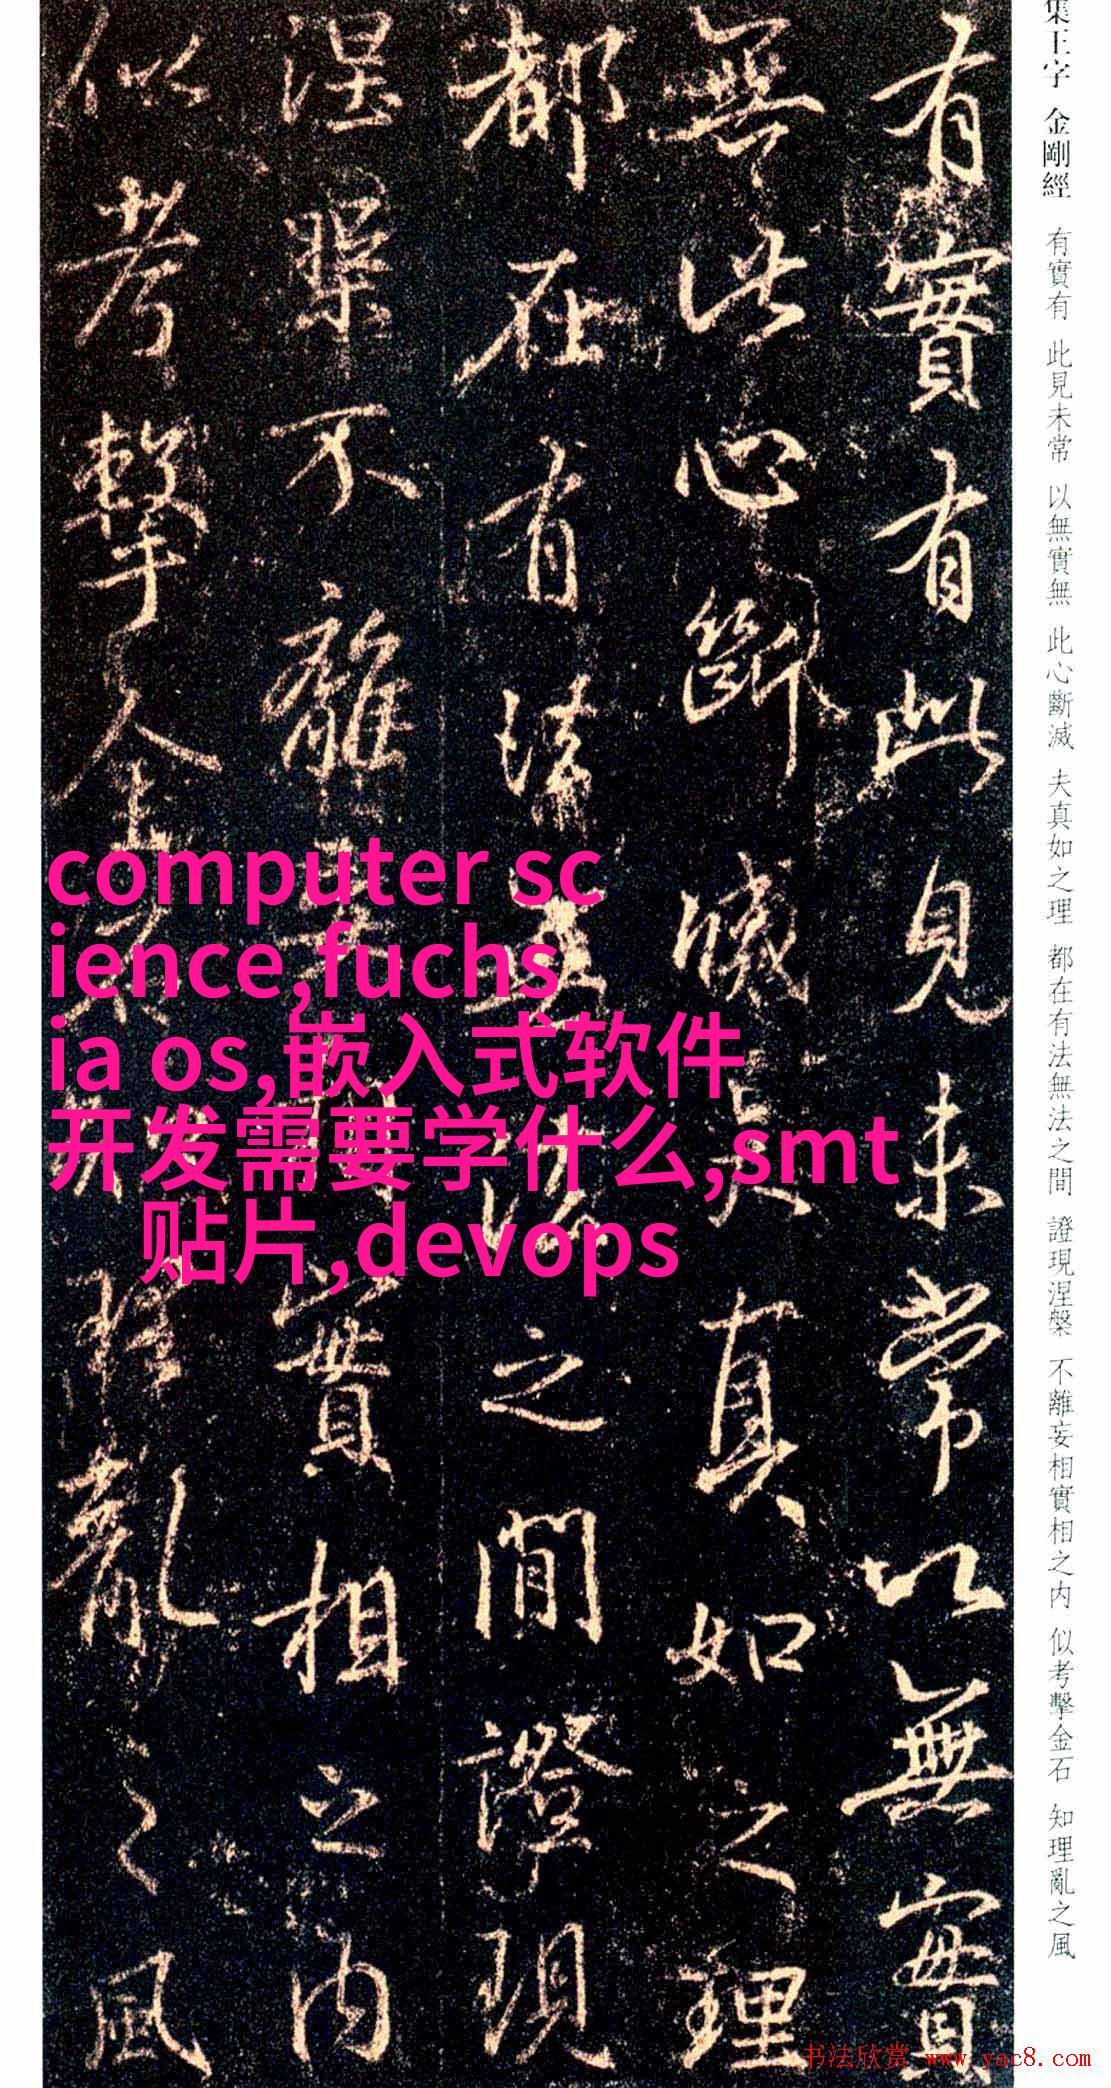 集王字 金剛經 有實有 此見未常 以無實無 此心斷滅 夫真如之理 都在有法無法之間 證現涅槃 不離妄相實相之内 似考擊金石 知理亂之風
有實有此見未常以無實
無此心斷滅夫真如之理
都在有法無法之間證現
涅槃不離妄相實相之内
似考擊金石知理亂之風
computer sc
ience,fuchs
ia os,嵌入式软件
开发需要学什么,smt
贴片,devops
书法欣赏 www.yac8.com